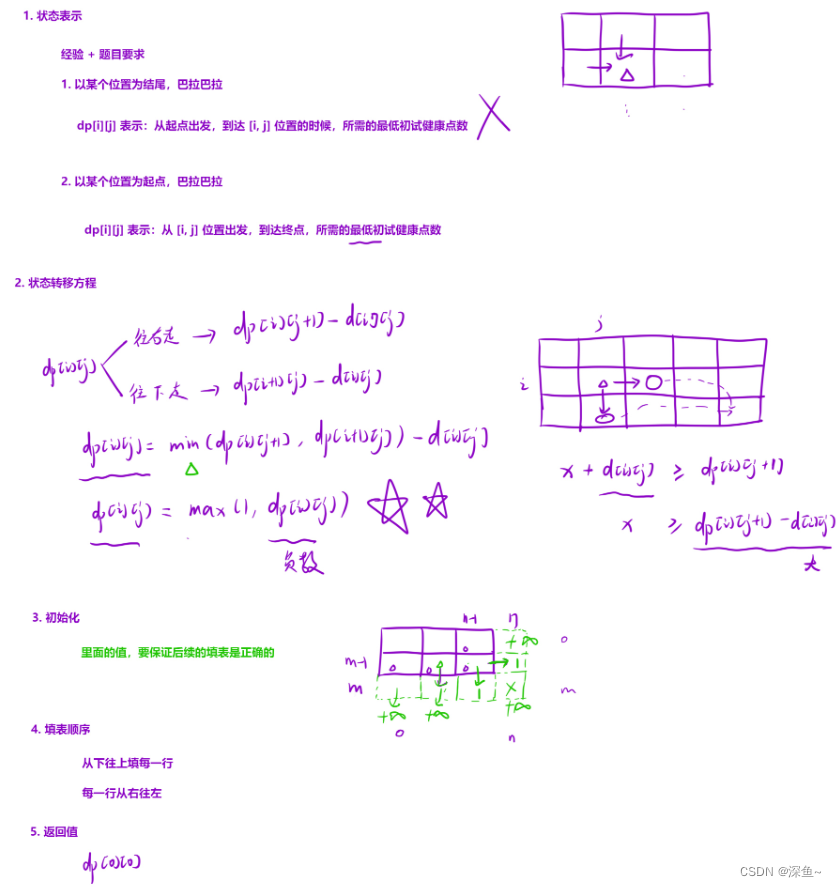 1. 状态表示
经验 + 题目要求
1. 以某个位置为结尾，巴拉巴拉
dp[i][j] 表示：从起点出发，到达 [i, j] 位置的时候，所需的最低初试健康点数
i
2. 以某个位置为起点，巴拉巴拉
dp[i][j] 表示：从 [i, j] 位置出发，到达终点，所需的最低初试健康点数
2. 状态转移方程
dp[i][j]
往右走 → dp[i][j+1] - d[i][j]
往下走 → dp[i+1][j] - d[i][j]
dp[i][j] = min(dp[i][j+1], dp[i+1][j]) - d[i][j]
dp[i][j] = max(1, dp[i][j])
负数
j
i
x + d[i][j] ≥ dp[i][j+1]
x ≥ dp[i][j+1] - d[i][j]
3. 初始化
里面的值，要保证后续的填表是正确的
n-1 n
+∞ 0
m-1 1
m 1 X m
+∞ +∞ +∞
0 n
4. 填表顺序
从下往上填每一行
每一行从右往左
5. 返回值
dp[0][0]
CSDN @深鱼~